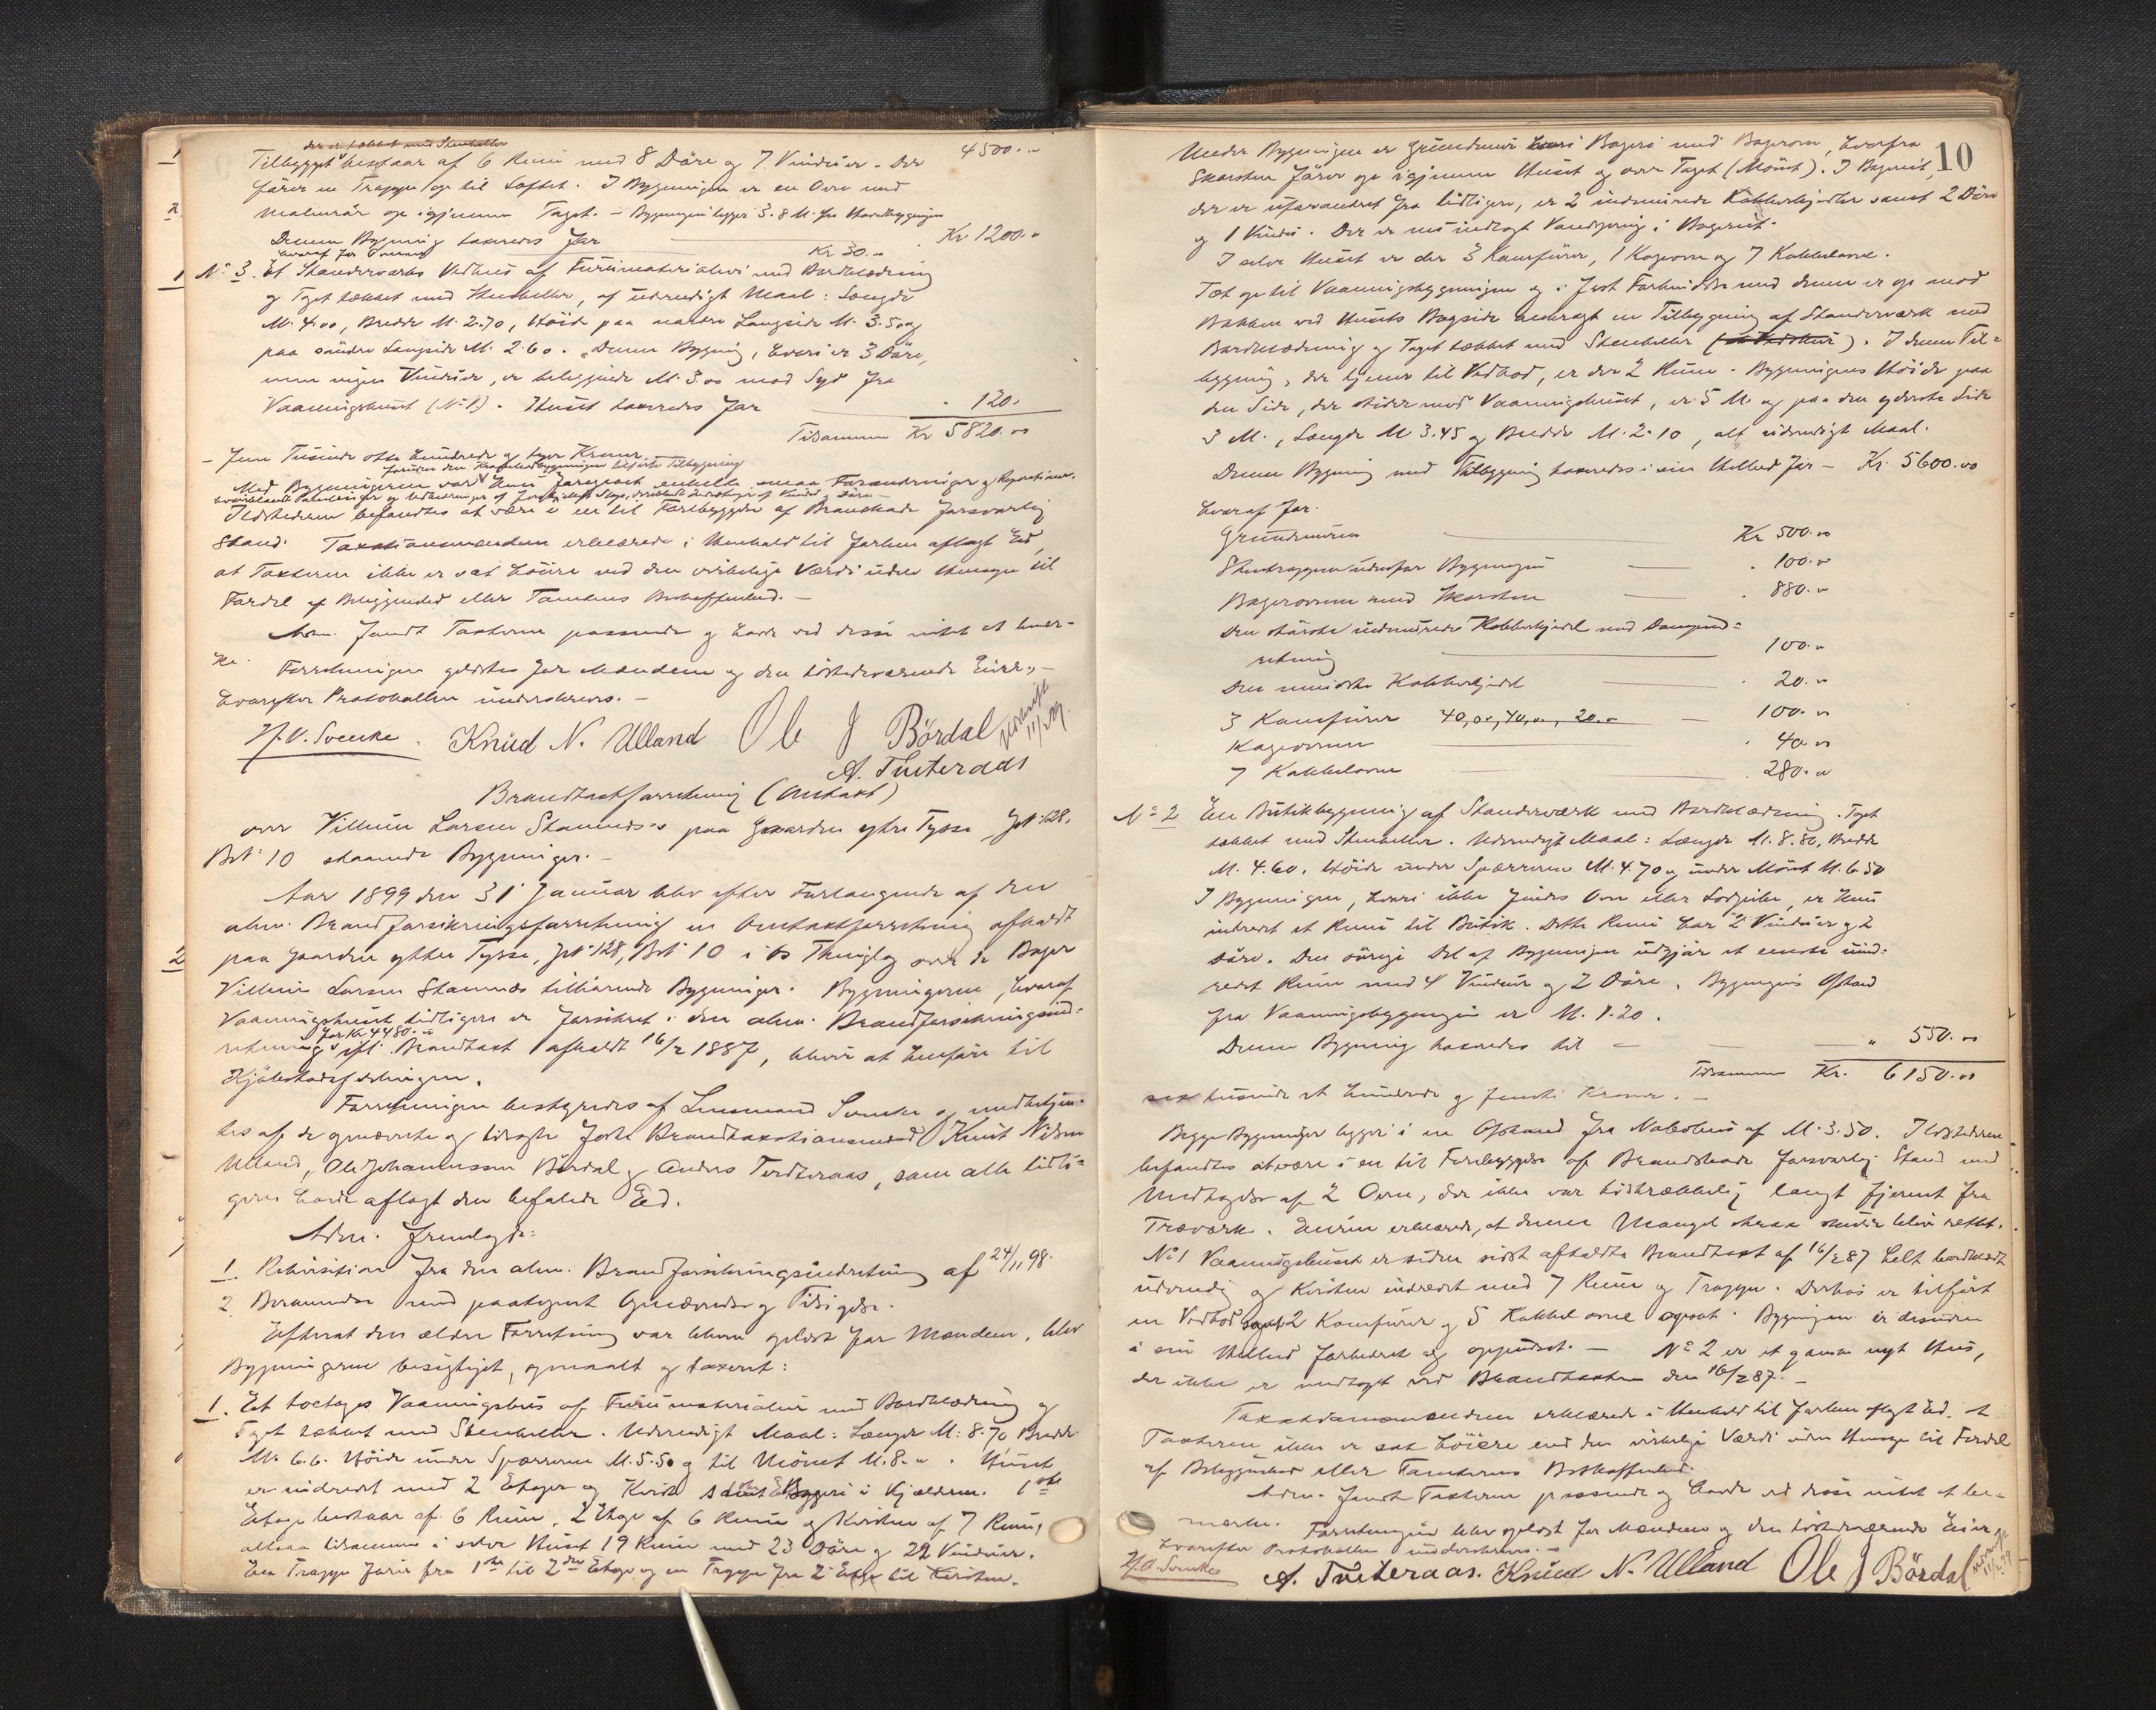 der er tækket med Stenheller
Tilbygget bestaar af 6 Rum med 8 Döre og 7 Vinduer. Der 4500.-
förer en Trappe op til Loftet. I Bygningen er en Ovn med
op igjennem Taget. - Bygningen ligger 3.8 M. fra Hovedbygningen
Denne Bygning taxeredes for Kr 1200.-
hvoraf for Ovnen Kr 30.-
No 3. Et Stenderværks Vedhus af Furumaterialier med Bordklædning
og Taget tækket med Stenheller, af udvendigt Maal: Længde
M. 4.00, Bredde M. 2.70, Höide paa nordre Langside M. 3.50 og
paa söndre Langside M. 2.60. Denne Bygning, hvori er 3 Döre,
men ingen Vinduer, er beliggende M. 3.00 mod Syd fra
Vaaningshuset (No 1). Huset taxeredes for 120.
Tilsammen Kr 5820.00
- Fem Tusinde otte hundrede og tyve Kroner.
foruden den Hovedbygningen tilföiede Tilbygning
Med Bygningerne var kun foregaaet enkelte smaa Forandringer og Reparationer.
Ildstederne befandtes at være i en til Forebyggelse af Brandskade forsvarlig
Stand. Taxationsmændene erklærede i Henhold til forhen aflagt Ed,
at Taxterne ikke er sat höiere end den virkelige Værdi uden Hensyn til
Fordel af Beliggenhed eller Tomtens Beskaffenhed. -
Adm. fandt Taxterne passende og havde ved disse intet at bemær-
ke. Forretningen oplæstes for Mændene og den tilstedeværende Eier, -
hvorefter Protokollen underskreves. -
H. V. Svenke. Knud N. Ulland Ole J Bördal
A. Tveteraas
Brandtaxtforretning (Omtaxt)
over Villum Larsen Stamnes's paa Gaarden ytre Tysse, G No 128.
B No 10 staaende Bygninger. -
Aar 1899 den 31 Januar blev efter Forlangende af den
alm. Brandforsikringsforretning en Omtaxtforretning afholdt
paa Gaarden ytre Tysse, G No 128, B No 10 i Thinglag over de Bager
Villum Larsen Stamnes tilhörende Bygninger. Bygningerne, hvoraf
Vaaningshuset tidligere er forsikret i den alm. Brandforsikringsind-
for Kr 4480.-
retning ifl. Brandtaxt afholdt 16/2 1887, bliver at henföre til
Kjöbstadafdelingen.
Forretningen bestyredes af Lensmand Svenke og medbetjen-
tes af de opnævnte og tilsagte faste Brandtaxationsmænd Knut Nilsen
Ulland, Ole Johannessen Bördal og Anders Tveteraas, som alle tidli-
gere havde aflagt den befalede Ed.
Adm. fremlagde:
1. Rekvisition fra den alm. Brandforsikringsindretning af 24/11 98.
2 Berammelse med paategnet Opnævnelse og Tilsigelse.
Efterat den ældre Forretning var bleven oplæst for Mændene, blev
Bygningerne besigtiget, opmaalt og taxeret:
1. Et toetages Vaaningshus af Furumaterialier med Bordklædning og
Taget tækket med Stenheller. Udvendigt Maal: Længde M: 8.70 Bredde
M. 6.6. Höide under Spærrerne M. 5.50 og til Mönet M. 8.- . Huset
er indredet med 2 Etager og Kvist samt Bageri i Kjælderen. 1ste
Etage bestaar af 6 Rum, 2 Etage af 6 Rum og Kvisten af 7 Rum,
altsaa tilsammen i selve Huset 19 Rum med 23 Döre og 22 Vinduer.
En Trappe förer fra 1ste til 2den Etage og en Trappe fra 2 Etage til Kvisten.
10
Under Bygningen er Grundmur hvori Bageri med Bagerovn, hvorfra
Skorsten förer op igjennem Huset og over Taget (Mönet). I Bageriet,
der er uforandret fra tidligere, er 2 indmurede Kobberkjedler samt 2 Döre
og 1 Vindu. Der er nu indlagt Vandspring i Bageriet.
I selve Huset er der 3 Komfurer, 1 Kogeovn og 7 Kakkelovne.
Tæt op til Vaaningsbygningen og i fast Forbindelse med denne er op mod
Bakken ved Husets Bagside anbragt en Tilbygning af Stenderværk med
Bordklædning og Taget tækket med Stenheller. I denne Til-
bygning, der tjener til Vedbod, er der 2 Rum. Bygningens Höide paa
den Side, der støder mod Vaaningshuset, er 5 M. og paa den yderste Side
3 M., Længde M 3.45 og Bredde M. 2.10, alt udvendigt Maal.
Denne Bygning med Tilbygning taxeredes i sin Helhed for - Kr. 5600.00
hvoraf for.
Grundmuren Kr 500.00
Stentrappen udenfor Bygningen 100.-
Bagerovnen med Skorsten 880.-
Den störste indmurede Kobberkjedel med Dampind-
retning 100.-
Den mindste Kobberkjedel 20.-
3 Komfurer 40,00, 40,00, 20.- 100.-
Kogeovnen 40.00
7 Kakkelovne 280.-
No 2 En Butikbygning af Stenderværk med Bordklædning. Taget
tækket med Stenheller. Udvendigt Maal: Længde M. 8.80, Bredde
M. 4.60. Höide under Spærrerne M. 4.70 og under Mönet M. 6.50
I Bygningen, hvori ikke findes Ovn eller Lodpibe, er kun
indredet et Rum til Butik. Dette Rum har 2 Vinduer og 2
Döre. Den övrige Del af Bygningen udgjör et eneste uind-
redet Rum med 4 Vinduer og 2 Döre. Bygningens Afstand
fra Vaaningsbygningen er M. 8.20.
Denne Bygning taxeredes til - " 550.00
Tilsammen Kr. 6150.00
sex tusinde et hundrede og femti Kroner. -
Begge Bygninger ligger i en Afstand fra Nabohus af M. 3.50. Ildstederne
befandtes at være i en til Forebyggelse af Brandskade forsvarlig Stand med
Undtagelse af 2 Ovne, der ikke var tilstrækkelig langt fjernet fra
Træværk. Eieren erklærede, at denne Mangel strax skulde blive rettet.
No 1 Vaaningshuset er siden sidst afholdte Brandtaxt af 16/2 87 helt bordklædt
udvendig og Kvisten indredet med 7 Rum og Trappe. Derhos er tilfört
en Vedbod samt 2 Komfurer og 5 Kakkelovne opsat. Bygningen er desuden
i sin Helhed forbedret og oppudset. - No 2 er et ganske nyt Hus,
der ikke er medtaget ved Brandtaxten den 16/2 87. -
Taxationsmændene erklærede i Henhold til forhen aflagt Ed, at
Taxterne ikke er sat höiere end den virkelige Værdi uden Hensyn til Fordel
af Beliggenhed eller Tomternes Beskaffenhed.
Adm. fandt Taxterne passende og havde ved disse intet at be-
mærke. Forretningen blev oplæst for Mændene og den tilstedeværende Eier,
hvorefter Protokollen underskreves. -
H. V. Svenke A. Tveteraas. Knud N. Ulland Ole J Bördal